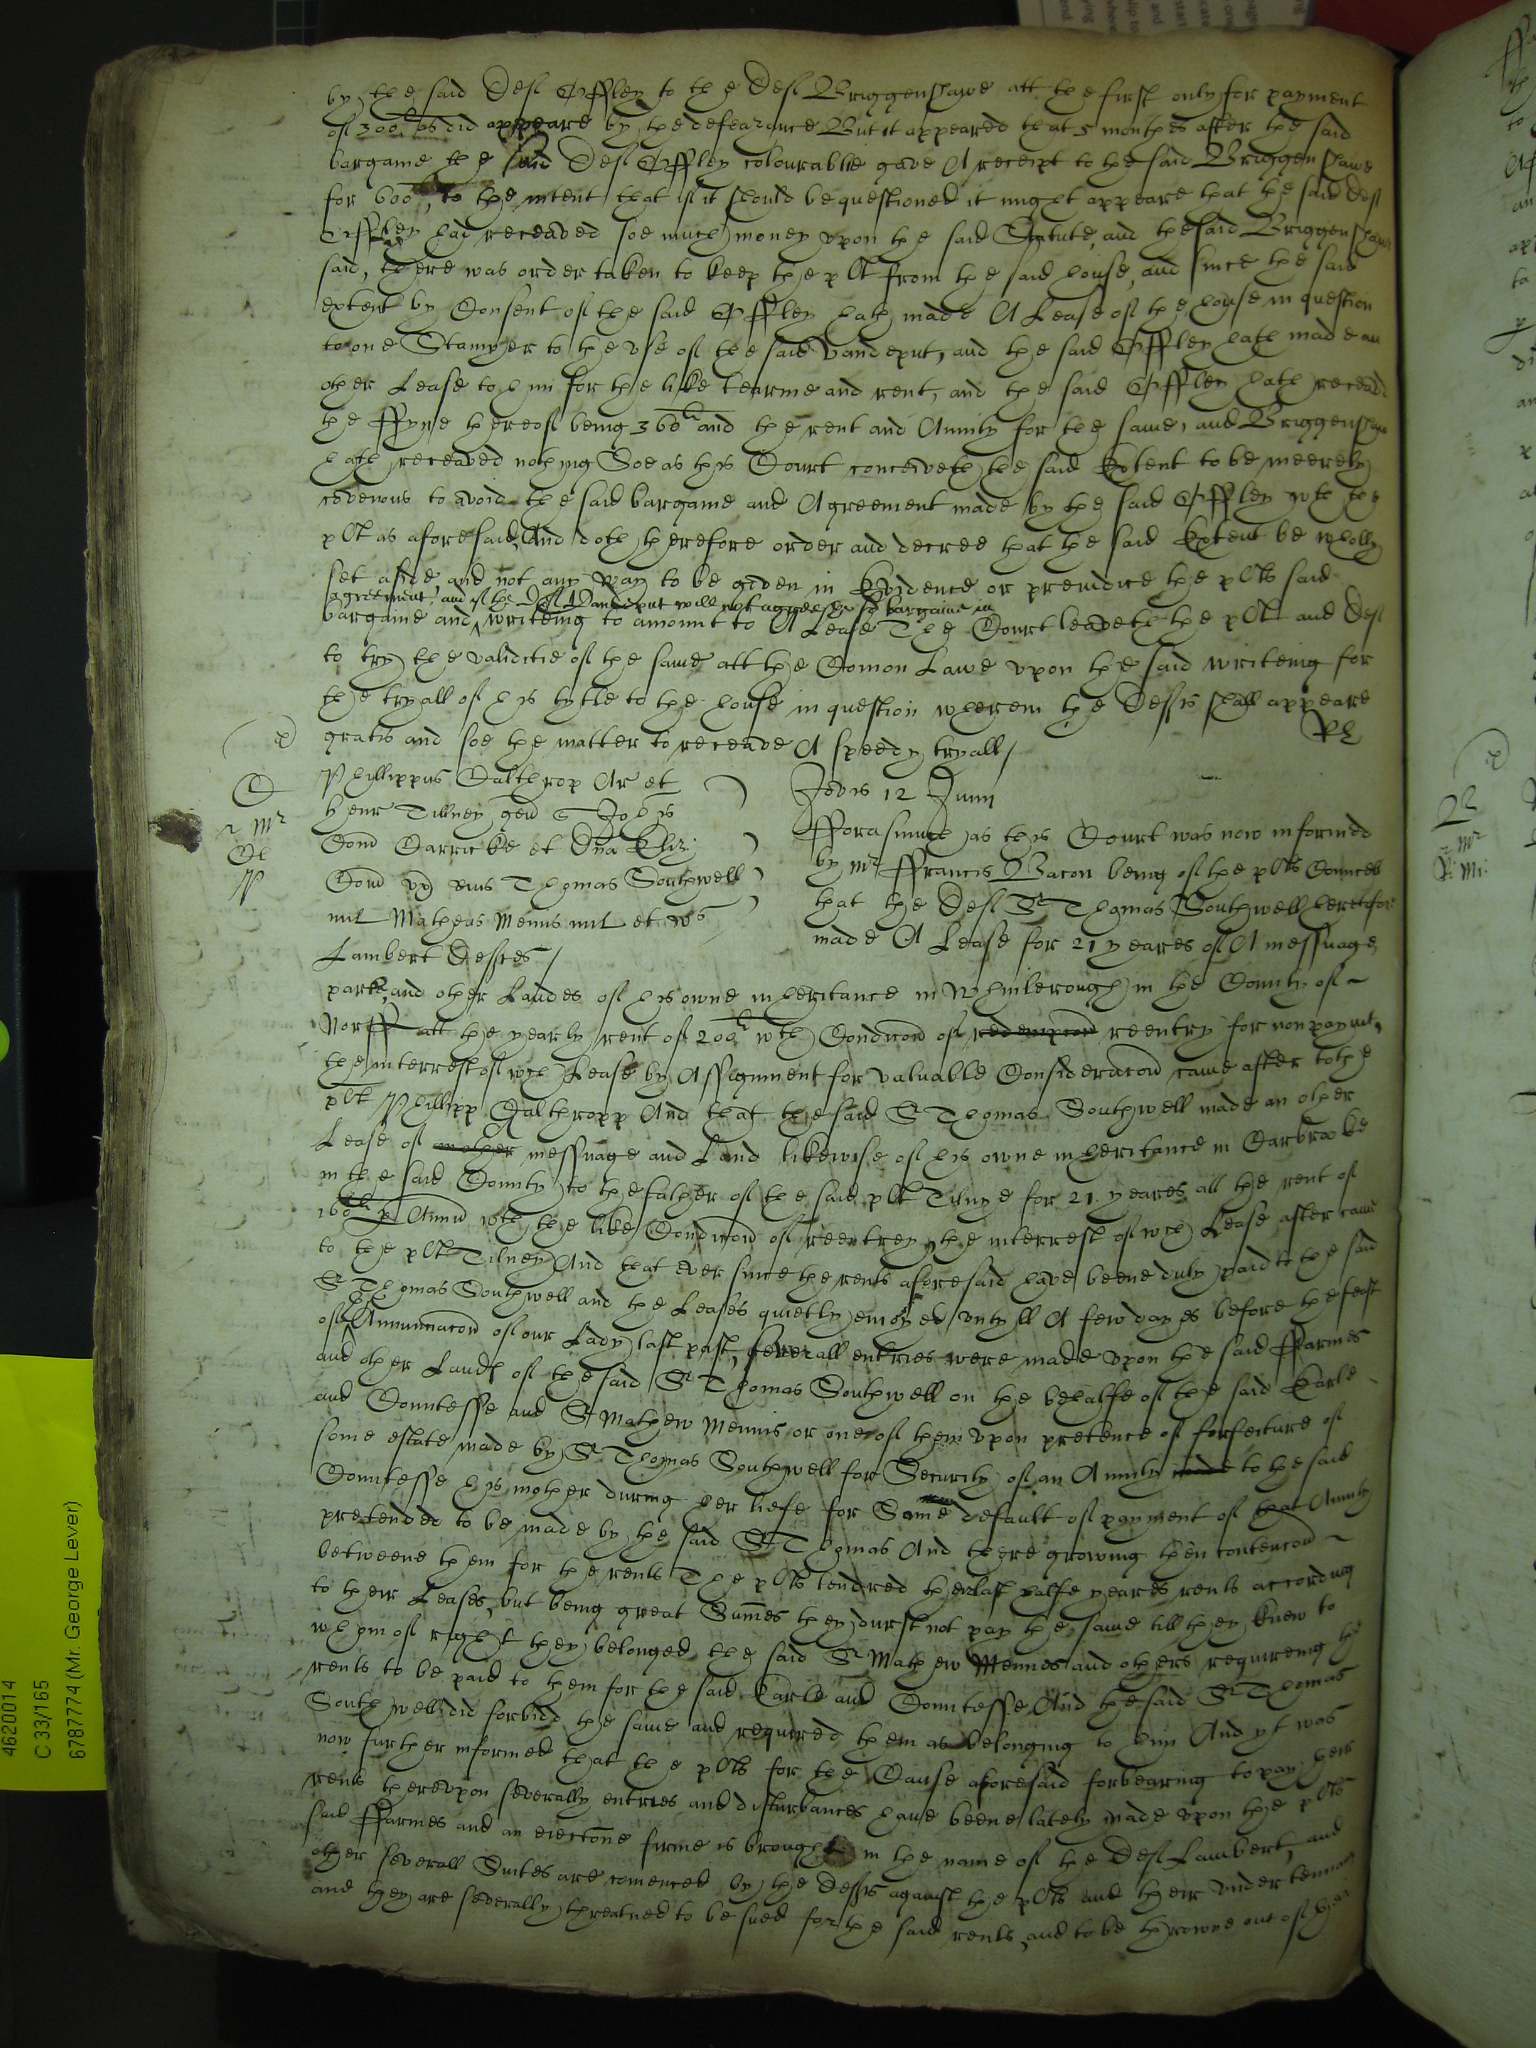 by the said Deft Offley to the Deft Briggenshawe att the first only for payment
of 300li as did appeare by the defeazance But it appeared that 5 monthes after the said
bargaine the said Deft Offley colourablie gave A receipt to the said Briggenshawe
for 600li, to the intent that if it should be questioned it might appeare that the said Deft
Offley had receaved soe much money upon the said Statute, and the said Briggenshawe
said, there was order taken to keep the plt from the said house, and since the said
extent by Consent of the said Offley hath made A Lease of the house in question
to one Stamper to the use of the said Vandeput, and the said Offley hath made an
other Lease to him for the like tearme and rent, and the said Offley hath receaved
the ffyne thereof being 360li and the rent and Anuity for the same, and Briggenshawe
hath receaved nothing Soe as this Court conceiveth the said Extent to be meerely
covenous to avoid the said bargaine and Agreement made by the said Offley wth the
plt as aforesaid, And doth therefore order and decree that the said Extent be wholly
set aside and not any way to be given in Evidence or preiudice the plts said
agreement, and if the Deft Vandeput will not agree the sd bargaine in
bargaine and writeing to amount to A Lease The Court leaveth the plt and Deft
to try the validitie of the same att the Comon Lawe upon the said writeing for
the tryall of his tytle to the house in question wherein the Defts shall appeare
gratis and soe the matter to receave A speedy tryall/
Phillippus Calthrop Ar et
Henr Tillney gen Johis
Com Carricke et Dna Eliz
Com ux eius Thomas Southwell
mil Matheus Mennis mil et
Lambert Deftes/
Jovis 12 Junii
Fforasmuch as this Court was now informed
by mr ffrancis Bacon being of the plts Councell
that the Deft Sr Thomas Southwell heretofore
made A Lease for 21 yeares of A messuage
parke, and other Landes of his owne inheritance in Whinberough in the County of
Norff att the yearly rent of 200li wth Condicon of redempcon reentry for non paymt,
the interrest of wch Lease by Assignment for valuable Consideracon came after to the
plt Phillipp Calthropp And that the said Sr Thomas Southwell made an other
Lease of another messuage and Land likewise of his owne inheritance in Carbrooke
in the said County to the father of the said plt Tilnye for 21 yeares all the rent of
160li p Annu wth the like Condicon of reentrey, the interrest of wch Lease after came
to the plt Tilney And that ever since the rents aforesaid have beene duly paid to the said
Sr Thomas Southwell and the Leases quietly enioyed untyll A few dayes before the feast
of Annunnacon of our Lady last past, severall entries were made upon the said ffarmes
and other Lands of the said Sr Thomas Southwell on the behalfe of the said Earle
and Countesse and Sr Mathew Mennis or one of them upon pretence of forfeiture of
some estate made by Sr Thomas Southwell for Security of an Anuity made to the said
Countesse his mother during her liefe for Some default of payment of that Anuity
pretended to be made by the said Sr Thomas And there growing then contencon
betweene them for the rents The plts tendred their last halfe yeares rents according
to their Leases, but being great Summes they durst not pay the same till they knew to
whom of right they belonged, the said Sr Mathew Mennes and others requireing the
rents to be paid to them for the said Earle and Countesse And the said Sr Thomas
Southwell did forbidd the same and required them as belonging to him And yt was
now further informed that the plts for the Cause aforesaid forbearing to pay their
rents thereupon severally entries and disturbances have beene lately made upon the plts
said ffarmes and an eiectone firme is brought in the name of the Deft Lambert, and
other severall Suites are comenced by the Defts against the plts and their under tennants
and they are severally threatned to be sued for the said rents, and to be throwne out of their
4620014
C 33/1165
6787774 (Mr. George Lever)